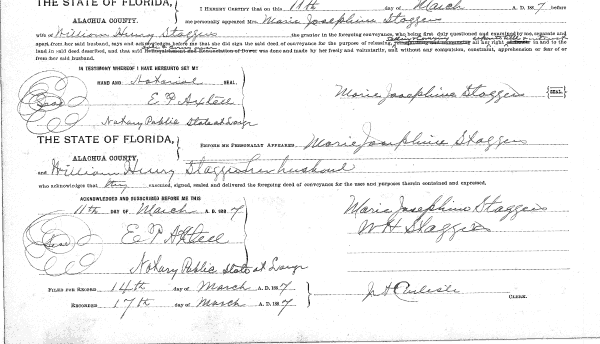 THE STATE OF FLORIDA,
ALACHUA COUNTY.
I HEREBY CERTIFY that on this 11th day of March A. D. 1887 before
me personally appeared Mrs. Marie Josephine Staggers
wife of William Henry Staggers the grantor in the foregoing conveyance, who being first duly questioned and examined by me, separate and
apart from her said husband, says and acknowledges before me that she did sign the said deed of conveyance for the purpose of all her right in and to the
land in said deed described, and that said was done and made by her freely and voluntarily, and without any compulsion, constraint, apprehension or fear of or
from her said husband.
IN TESTIMONY WHEREOF I HAVE HEREUNTO SET MY
HAND AND Notarial SEAL.
Marie Josephine Staggers SEAL
Seal E. P. Axtell
Notary Public State at Large
THE STATE OF FLORIDA,
ALACHUA COUNTY.
BEFORE ME PERSONALLY APPEARED Marie Josephine Staggers
and William Henry Staggers her husband
who acknowledges that they executed, signed, sealed and delivered the foregoing deed of conveyance for the uses and purposes therein contained and expressed.
ACKNOWLEDGED AND SUBSCRIBED BEFORE ME THIS
11th DAY OF March A. D. 1887
Marie Josephine Staggers
Seal E. P. Axtell
W H Staggers
Notary Public State at Large
FILED FOR RECORD 14th day of March A. D. 1887
RECORDED 17th day of March A. D. 1887
J A Carlisle CLERK.